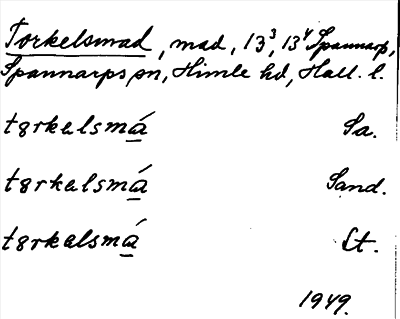 Torkelsmad, mad, 13³, 13⁴ Spannarp,
Spannarps sn, Himle hd, Hall. l.
tørkəlsmá̱ Sa.
tørkəlsmá̱ Sand.
tørkəlsmá̱ St.
1949.